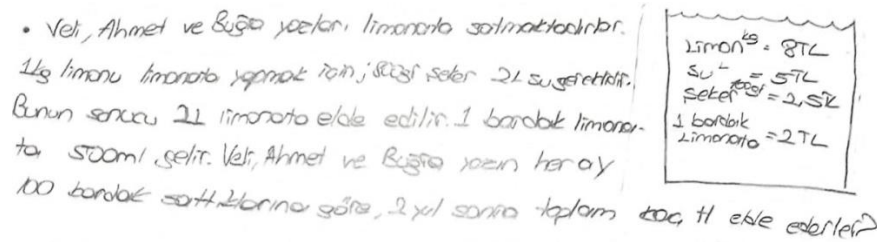 • Veli, Ahmet ve Buğra yazları limonata satmaktadırlar.
1kg limonu limonata yapmak için; 500gr şeker 2L su gereklidir.
Bunun sonucu 2L limonata elde edilir. 1 bardak limona-
ta 500ml gelir. Veli, Ahmet ve Buğra yazın her ay
100 bardak sattıklarına göre, 2 yıl sonra toplam kaç tl elde ederler?
Limon kg = 8TL
Su L = 5TL
Şeker = 2,5TL
1 bardak
Limonata = 2TL